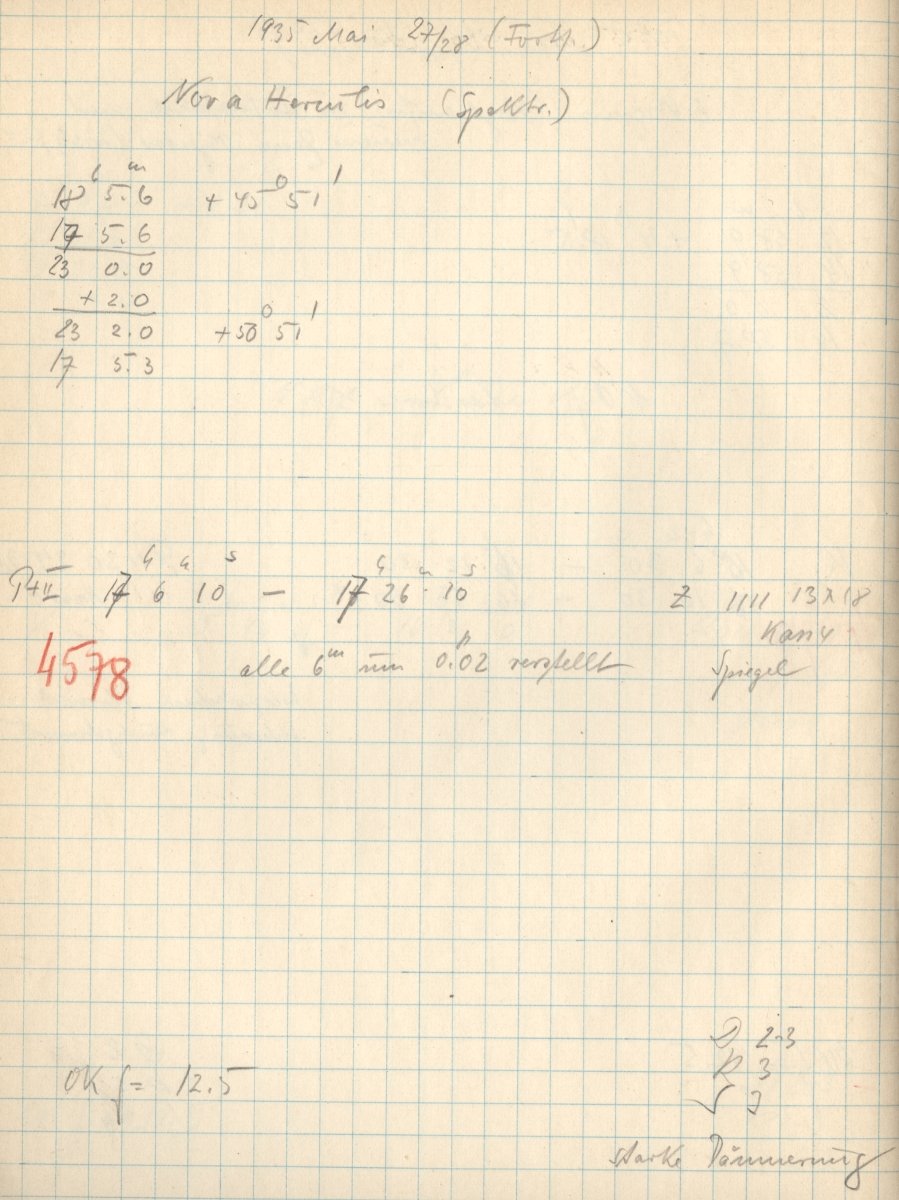 1935 Mai 27/28 (Forts.)
Nova Herculis (Spektr.)
18 h 5.6 m + 45° 51'
17 5.6
23 0.0
+ 2.0
23 2.0 + 50° 51'
17 5.3
17 h 6 m 10 s — 17 h 26 m 10 s Z IIII 13 x 18
4578 alle 6 m um 0.02 verstellt Spiegel
OK f = 12.5
D 2-3
R 3
3
starke Dämmerung